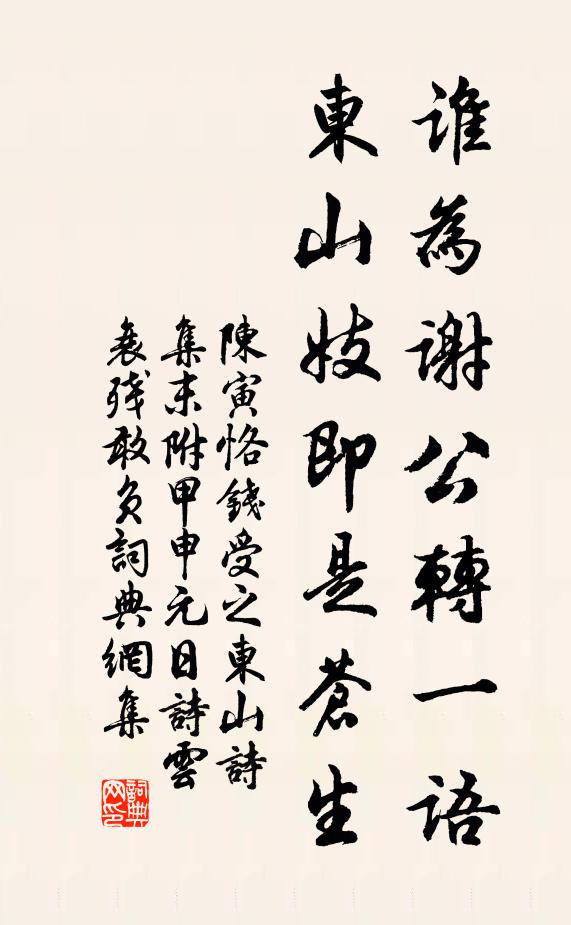 誰為謝公轉一語
東山妓即是蒼生
陳寅恪錢受之東山詩
集末附甲申元日詩雲
衰殘敢負詞典網集
詞典网印